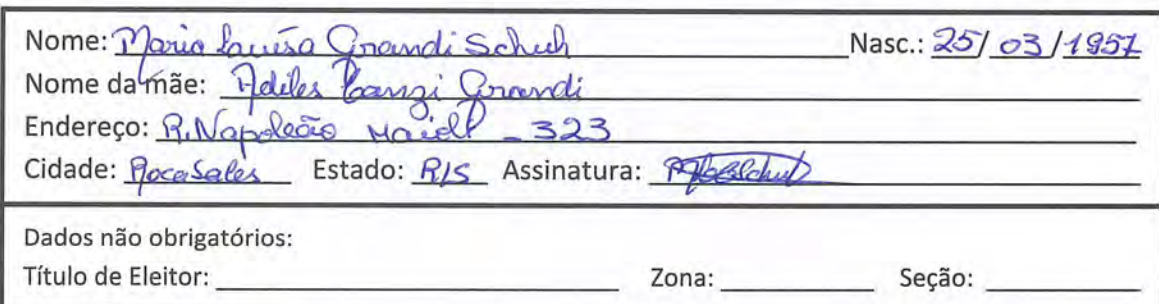 Nome: Maria Luísa Grandi Schuh Nasc.: 25/03/1957
Nome da mãe: Adiles Canzi Grandi
Endereço: R. Napoleão Maioli - 323
Cidade: Roca Sales Estado: R/S Assinatura:
Dados não obrigatórios:
Título de Eleitor: Zona: Seção: